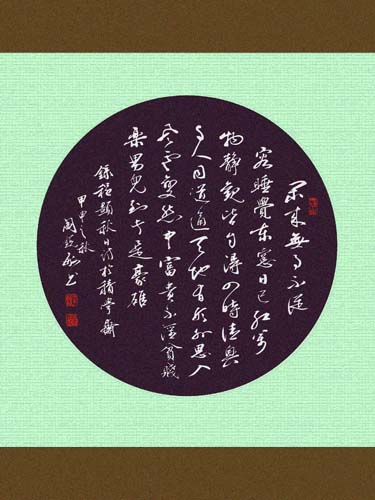 闲来無事不從
容睡覺東窓日已红萬
物静觀皆自得四時佳興
与人同道通天地有形外思入
风云變態中富貴不淫貧賤
樂男兒到此是豪雄
録程颢秋日诗於積學齋
甲申之秋
书